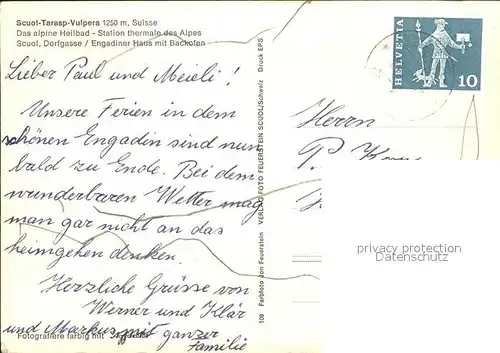 Scuol-Tarasp-Vulpera 1250 m, Suisse
Das alpine Heilbad - Station thermale des Alpes
Scuol, Dorfgasse / Engadiner Haus mit Backofen
Lieber Paul und Meieli!
Unsere Ferien in dem
schönen Engadin sind nun
bald zu Ende. Bei dem
wunderbaren Wetter mag
man gar nicht an das
heimgehen denken.
Herzliche Grüsse von
Werner und Klär
und Markus mit ganzer
Familie
Fotografiere farbig mit
109 Farbfoto Jon Feuerstein VERLAG FOTO FEUERSTEIN SCUOL/Schweiz Druck EPS
HELVETIA
10
Herrn
P.
privacy protection
Datenschutz